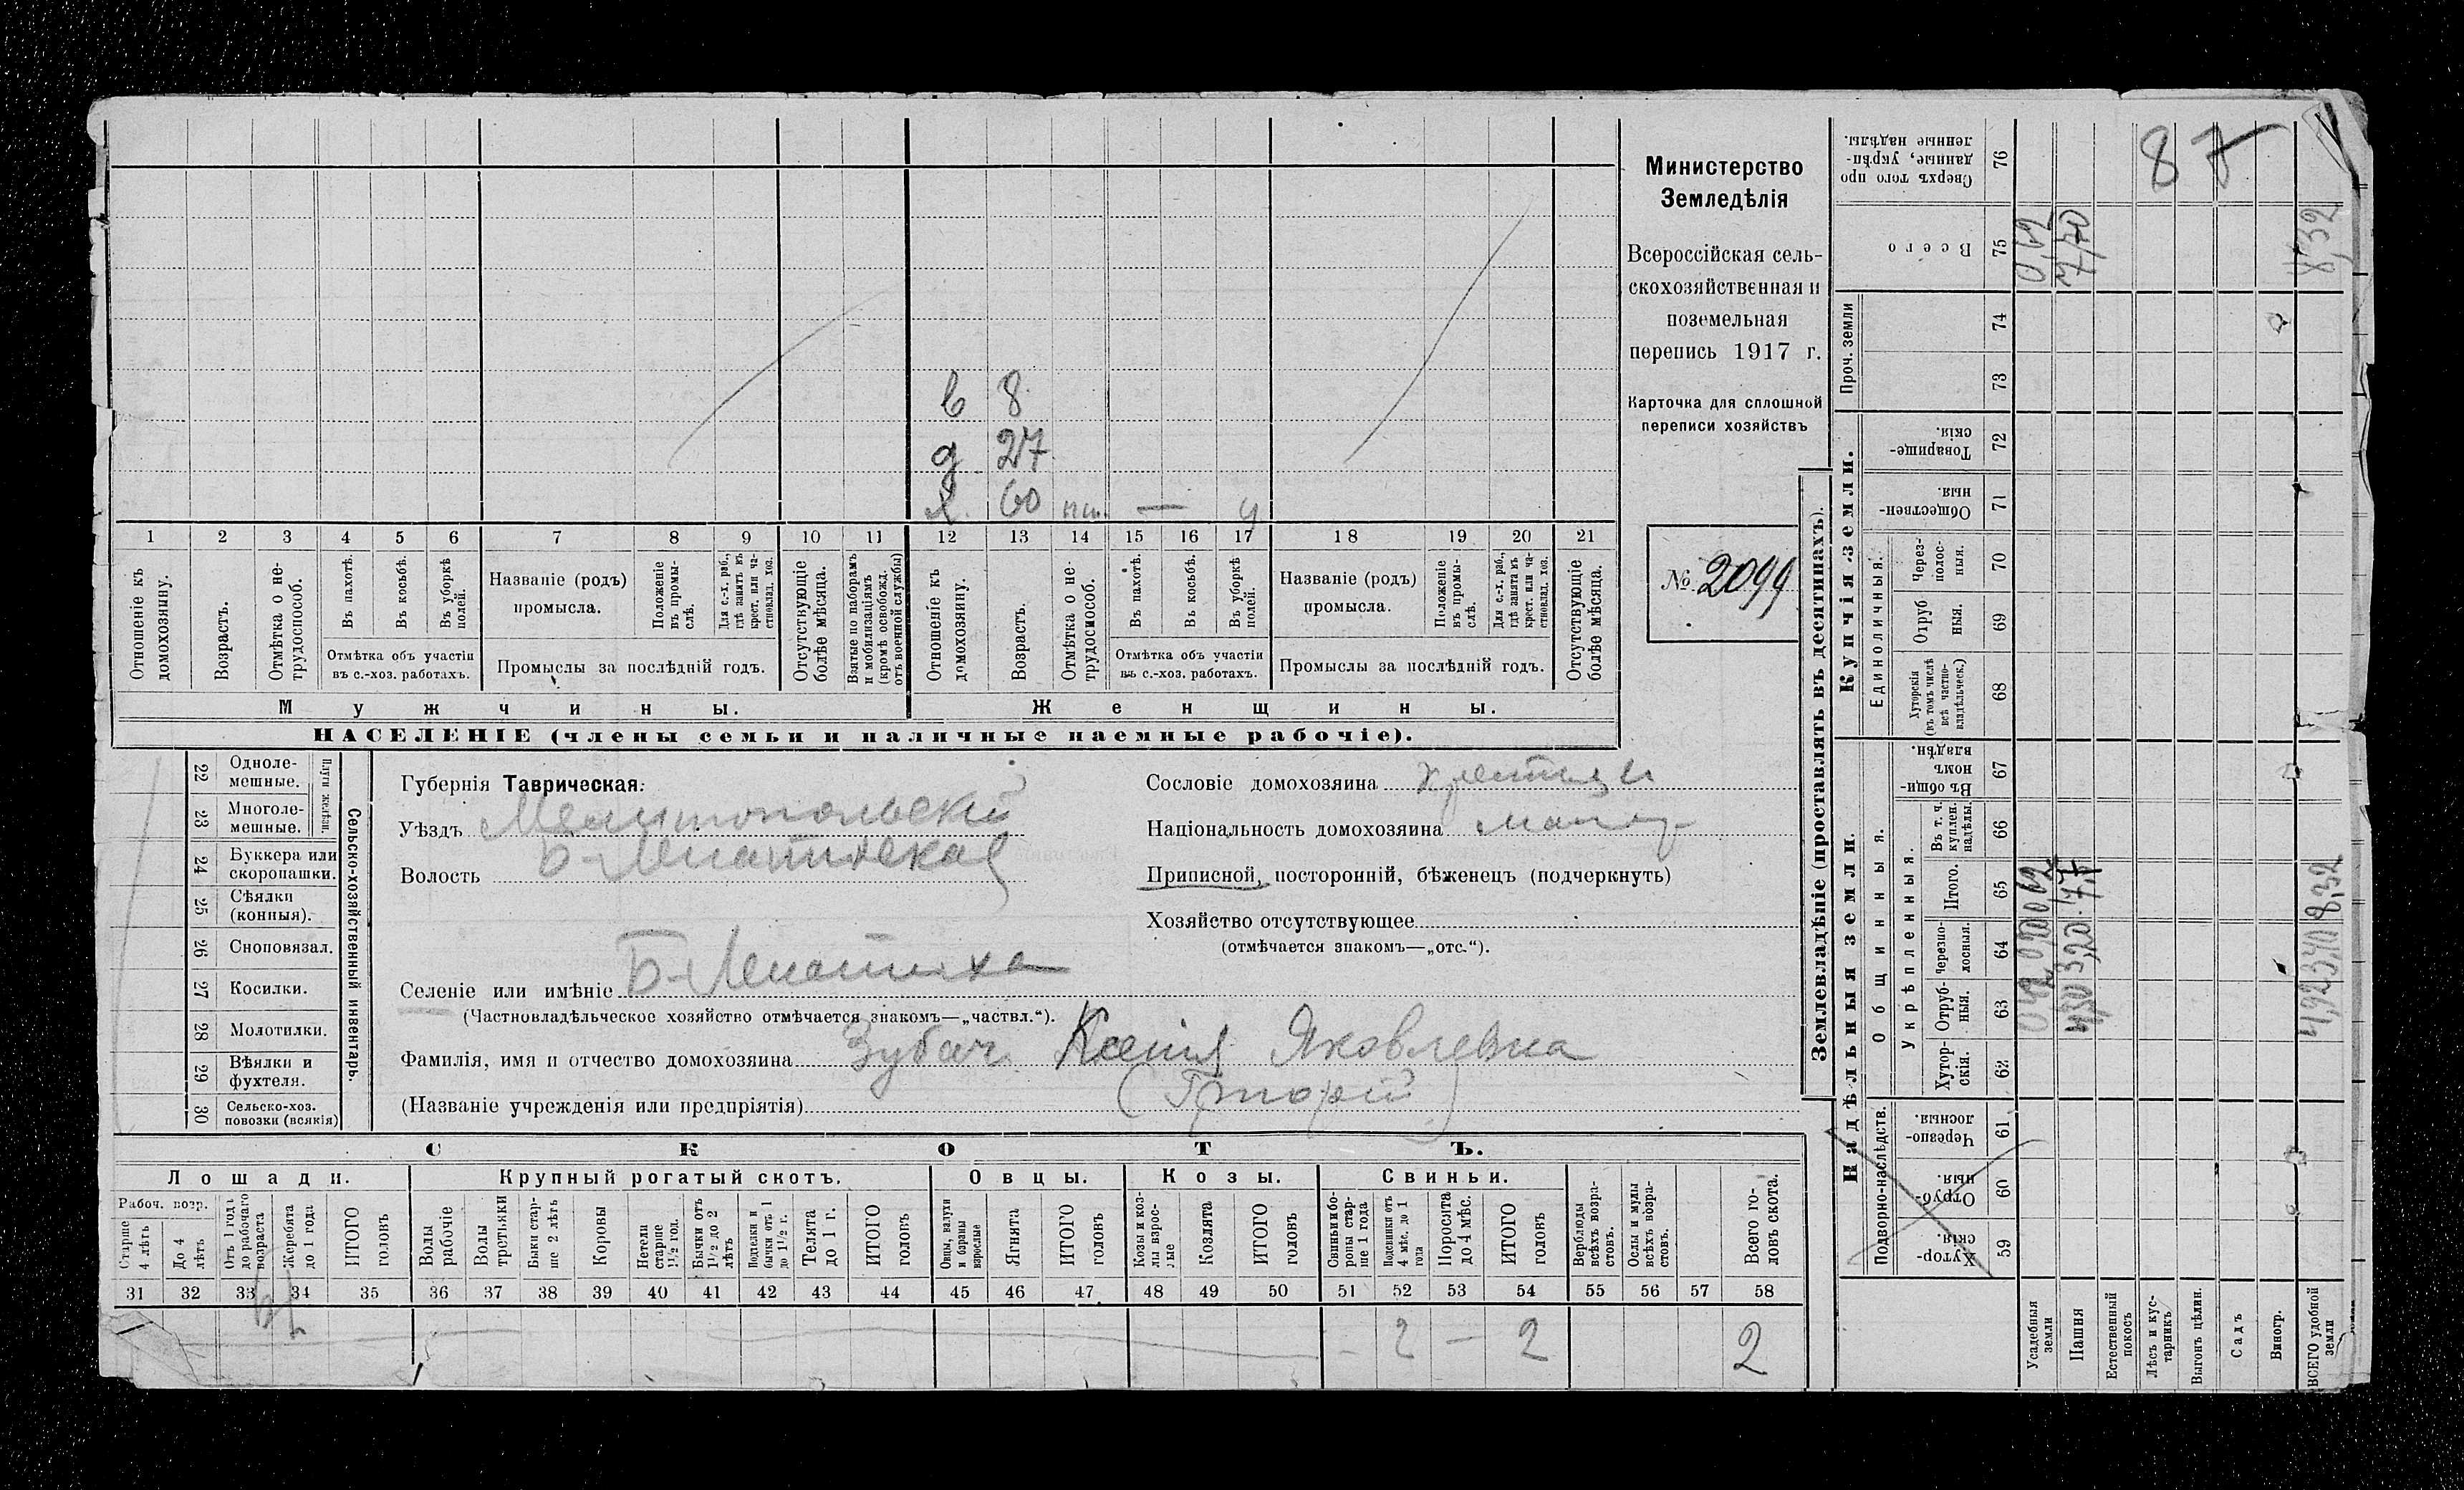 в 8
д 27
х. 60 пш. — у
1 2 3 4 5 6 7 8 9 10 11 12 13 14 15 16 17 18 19 20 21
Отношеніе къ домохозяину.
Возрастъ.
Отмѣтка о не-
трудоспособ.
Въ пахотѣ.
Въ косьбѣ.
Въ уборкѣ полей.
Отмѣтка объ участіи
въ с.-хоз. работахъ.
Названіе (родъ)
промысла.
Положеніе въ промы-
слѣ.
Для с.-х. раб.,
гдѣ занятъ въ
крест. или ча-
стновлад. хоз.
Промыслы за послѣдній годъ.
Отсутствующіе
болѣе мѣсяца.
Взятые по наборамъ
и мобилизаціямъ
(кромѣ освобожд.
отъ военной службы)
Отношеніе къ
домохозяину.
Возрастъ.
Отмѣтка о не-
трудоспособ.
Въ пахотѣ.
Въ косьбѣ.
Въ уборкѣ
полей.
Отмѣтка объ участіи
въ с.-хоз. работахъ.
Названіе (родъ)
промысла.
Положеніе
въ промы-
слѣ.
Для с.-х. раб.,
гдѣ занята въ
крест. или ча-
стновлад. хоз.
Промыслы за послѣдній годъ.
Отсутствующіе
болѣе мѣсяца.
Мужчины.
Женщины.
НАСЕЛЕНІЕ (члены семьи и наличные наемные рабочіе).
Министерство
Земледѣлія
Всероссійская сель-
скохозяйственная и
поземельная
перепись 1917 г.
Карточка для сплошной
переписи хозяйствъ
№ 2099
22 Одноле-
мешные.
23 Многоле-
мешные.
Плуги желѣзн.
24 Буккера или
скоропашки.
25 Сѣялки
(конныя).
26 Сноповязал.
27 Косилки.
28 Молотилки.
29 Вѣялки и
фухтеля.
30 Сельско-хоз.
повозки (всякія)
Сельско-хозяйственный инвентарь.
Губернія Таврическая.
Уѣздъ Мелитопольскій
Волость Б-Лепатихская
Селеніе или имѣніе Б-Лепатиха
(Частновладѣльческое хозяйство отмѣчается знакомъ—„частвл.“).
Фамилія, имя и отчество домохозяина Зубач Ксенія Яковлевна
(Названіе учрежденія или предпріятія)
(Григорій)
Сословіе домохозяина крестьян
Національность домохозяина малор
Приписной, посторонній, бѣженецъ (подчеркнуть)
Хозяйство отсутствующее
(отмѣчается знакомъ—„отс.“).
СКОТЪ.
Лошади.
Крупный рогатый скотъ.
Овцы.
Козы.
Свиньи.
Рабоч. возр.
Старше
4 лѣтъ
До 4
лѣтъ
Отъ 1 года
до рабочаго
возраста
Жеребята
до 1 года
ИТОГО
головъ
Волы
рабочіе
Волы
третьяки
Быки стар-
ше 2 лѣтъ
Коровы
Нетели
старше
1½ год.
Бычки отъ
1½ до 2
лѣтъ
Подтелки и
бычки отъ 1
до 1½ г.
Телята
до 1 г.
ИТОГО
головъ
Овцы, валухи
и бараны
взрослые
Ягнята
ИТОГО
головъ
Козы и коз-
лы взрос-
лые
Козлята
ИТОГО
головъ
Свиньи и бо-
ровы стар-
ше 1 года
Подсвинки отъ
4 мѣс. до 1
года
Поросята
до 4 мѣс.
ИТОГО
головъ
Верблюды
всѣхъ возра-
стовъ.
Ослы и мулы
всѣхъ возра-
стовъ.
Всего го-
ловъ скота.
31 32 33 34 35 36 37 38 39 40 41 42 43 44 45 46 47 48 49 50 51 52 53 54 55 56 57 58
- 2 — 2 2
Землевладѣніе (проставлять въ десятинахъ).
Надѣльныя земли.
Купчія земли.
Проч. земли
Подворно-наслѣдств.
Общинныя.
Укрѣпленныя.
Единоличныя:
Хутор-
скія. 59
Отруб-
ныя. 60
Черезпо-
лосныя. 61
Хутор-
скія. 62
Отруб-
ныя. 63
Черезпо-
лосныя. 64
Итого. 65
Въ т. ч.
куплен.
надѣлы. 66
Въ общи-
номъ
владѣн. 67
Хуторскія
(въ томъ числѣ
всѣ частно-
владѣльческ.) 68
Отруб
ныя. 69
Через-
полос-
ныя. 70
Обществен-
ныя. 71
Товарище-
скія. 72
73
74
Всего 75
Сверхъ того про
данные, укрѣп-
ленные надѣлы. 76
Усадебныя
земли
0,62
Пашня
4,50 3,20 7,7 7,70
Естественный
покосъ
Лѣсъ и кус-
тарникъ
Выгонъ цѣлин.
Садъ
Виногр.
ВСЕГО удобной
земли
4,92 3,40 8,32 8,32
87